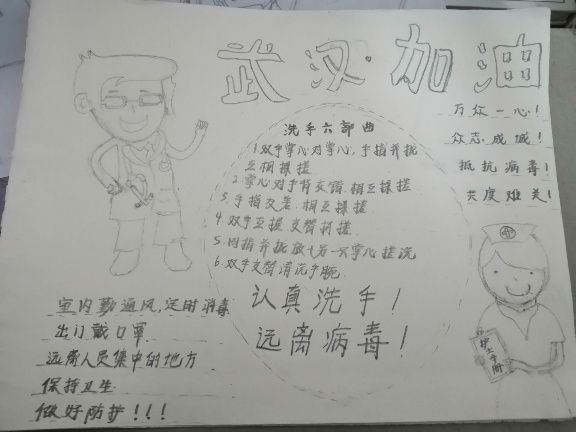 武汉·加油
万众一心！
众志成城！
抵抗病毒！
共度难关！
洗手六部曲
1.双手掌心对掌心,手指并拢
互相揉搓
2.掌心对手背交错,相互揉搓
3.手指交差,相互揉搓
4.双手互握交替揉搓
5.四指并拢放与另一只掌心搓洗
6.双手交替清洗手腕
认真洗手！
远离病毒！
室内勤通风,定时消毒
出门戴口罩
远离人员集中的地方
保持卫生
做好防护！！！
护士手册